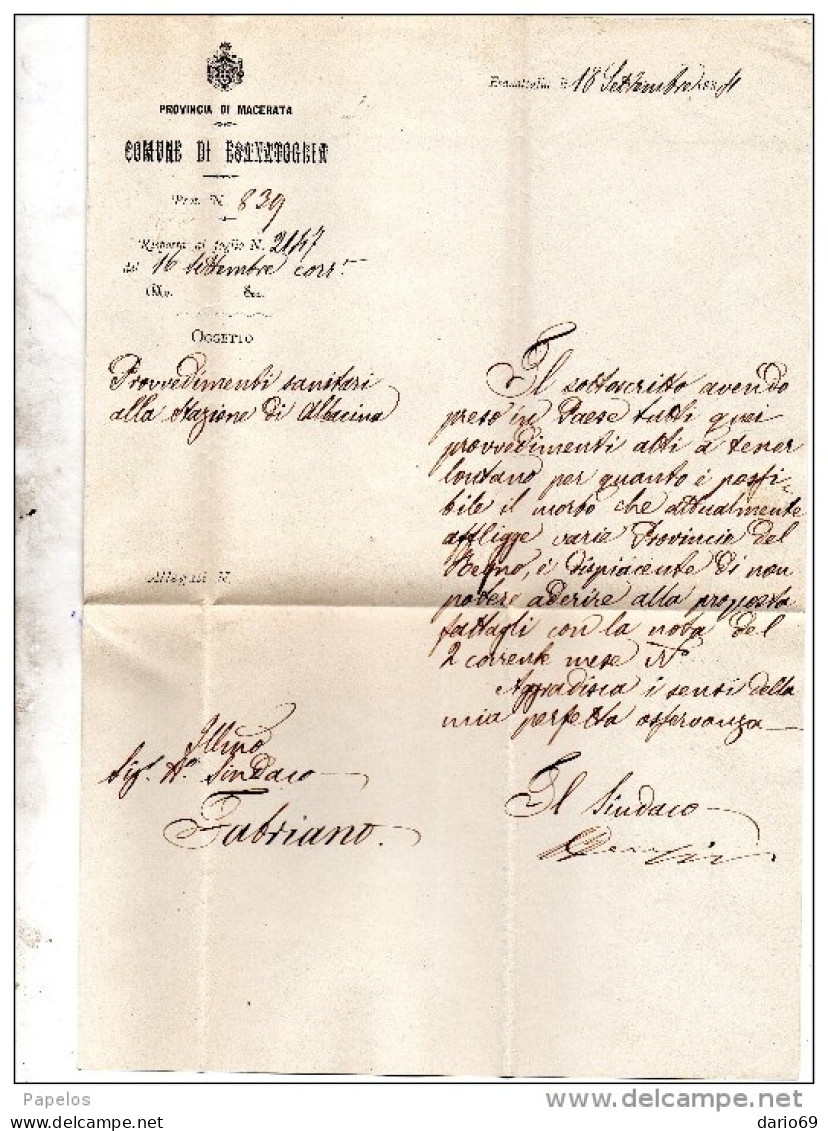 PROVINCIA DI MACERATA
COMUNE DI ESANATOGLIA
Prot. N. 839
Risposta al foglio N. 2147
del 16 settembre corr.e
Div. Sez.
OGGETTO
Provvedimenti sanitari
alla Stazione di Albacina
Allegati N.
Illmo
Sig. Sindaco
Fabriano.
Esanatoglia li 18 Settembre 188
Il sottoscritto avendo
preso in Paese tutti quei
provvedimenti atti a tener
lontano per quanto è possi-
bile il morbo che attualmente
affligge varie Provincie del
Regno, è dispiacente di non
potere aderire alla proposta
fattagli con la nota del
2 corrente mese N°
Aggradisca i sensi della
mia perfetta osservanza
Il Sindaco
Papelos
delcampe.net
dario69